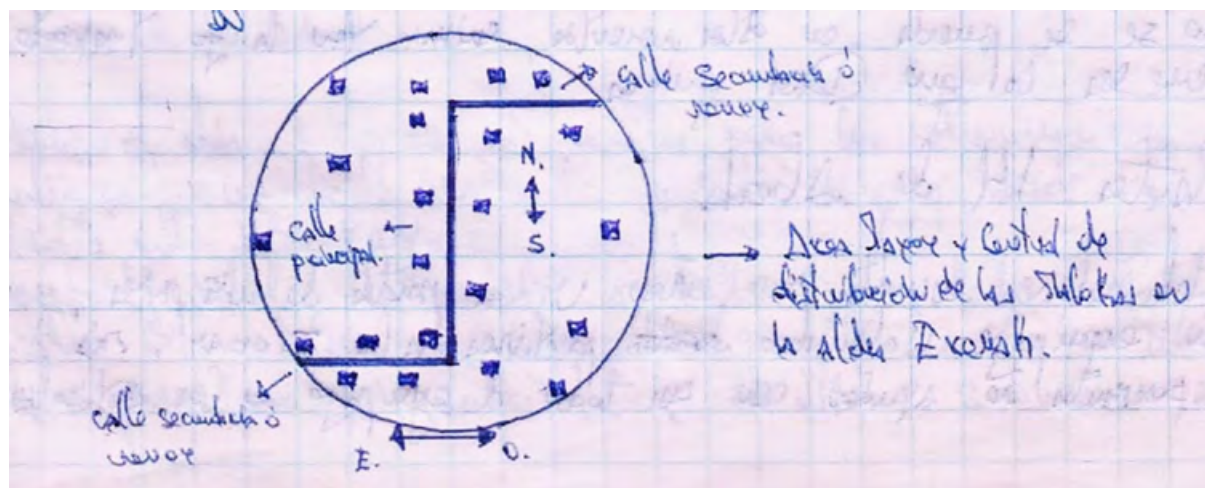 calle secundaria ó
menor.
N.
S.
calle
principal.
Area mayor y Central de
distribución de las Malokas en
la aldea
calle secundaria ó
menor
E.
O.